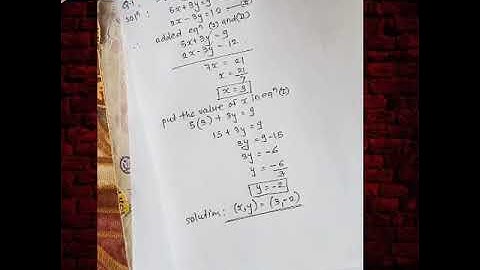 Q-1.
5x+3y=9
Solⁿ: 2x-3y=12 —(2)
∴ added eqⁿ (1) and (2)
5x+3y = 9
2x-3y = 12
7x = 21
x = 21/7
x = 3
put the value of x in eqⁿ(1)
5(3) + 3y = 9
15 + 3y = 9
3y = 9-15
3y = -6
y = -6/3
y = -2
solution: (x,y) = (3,-2)